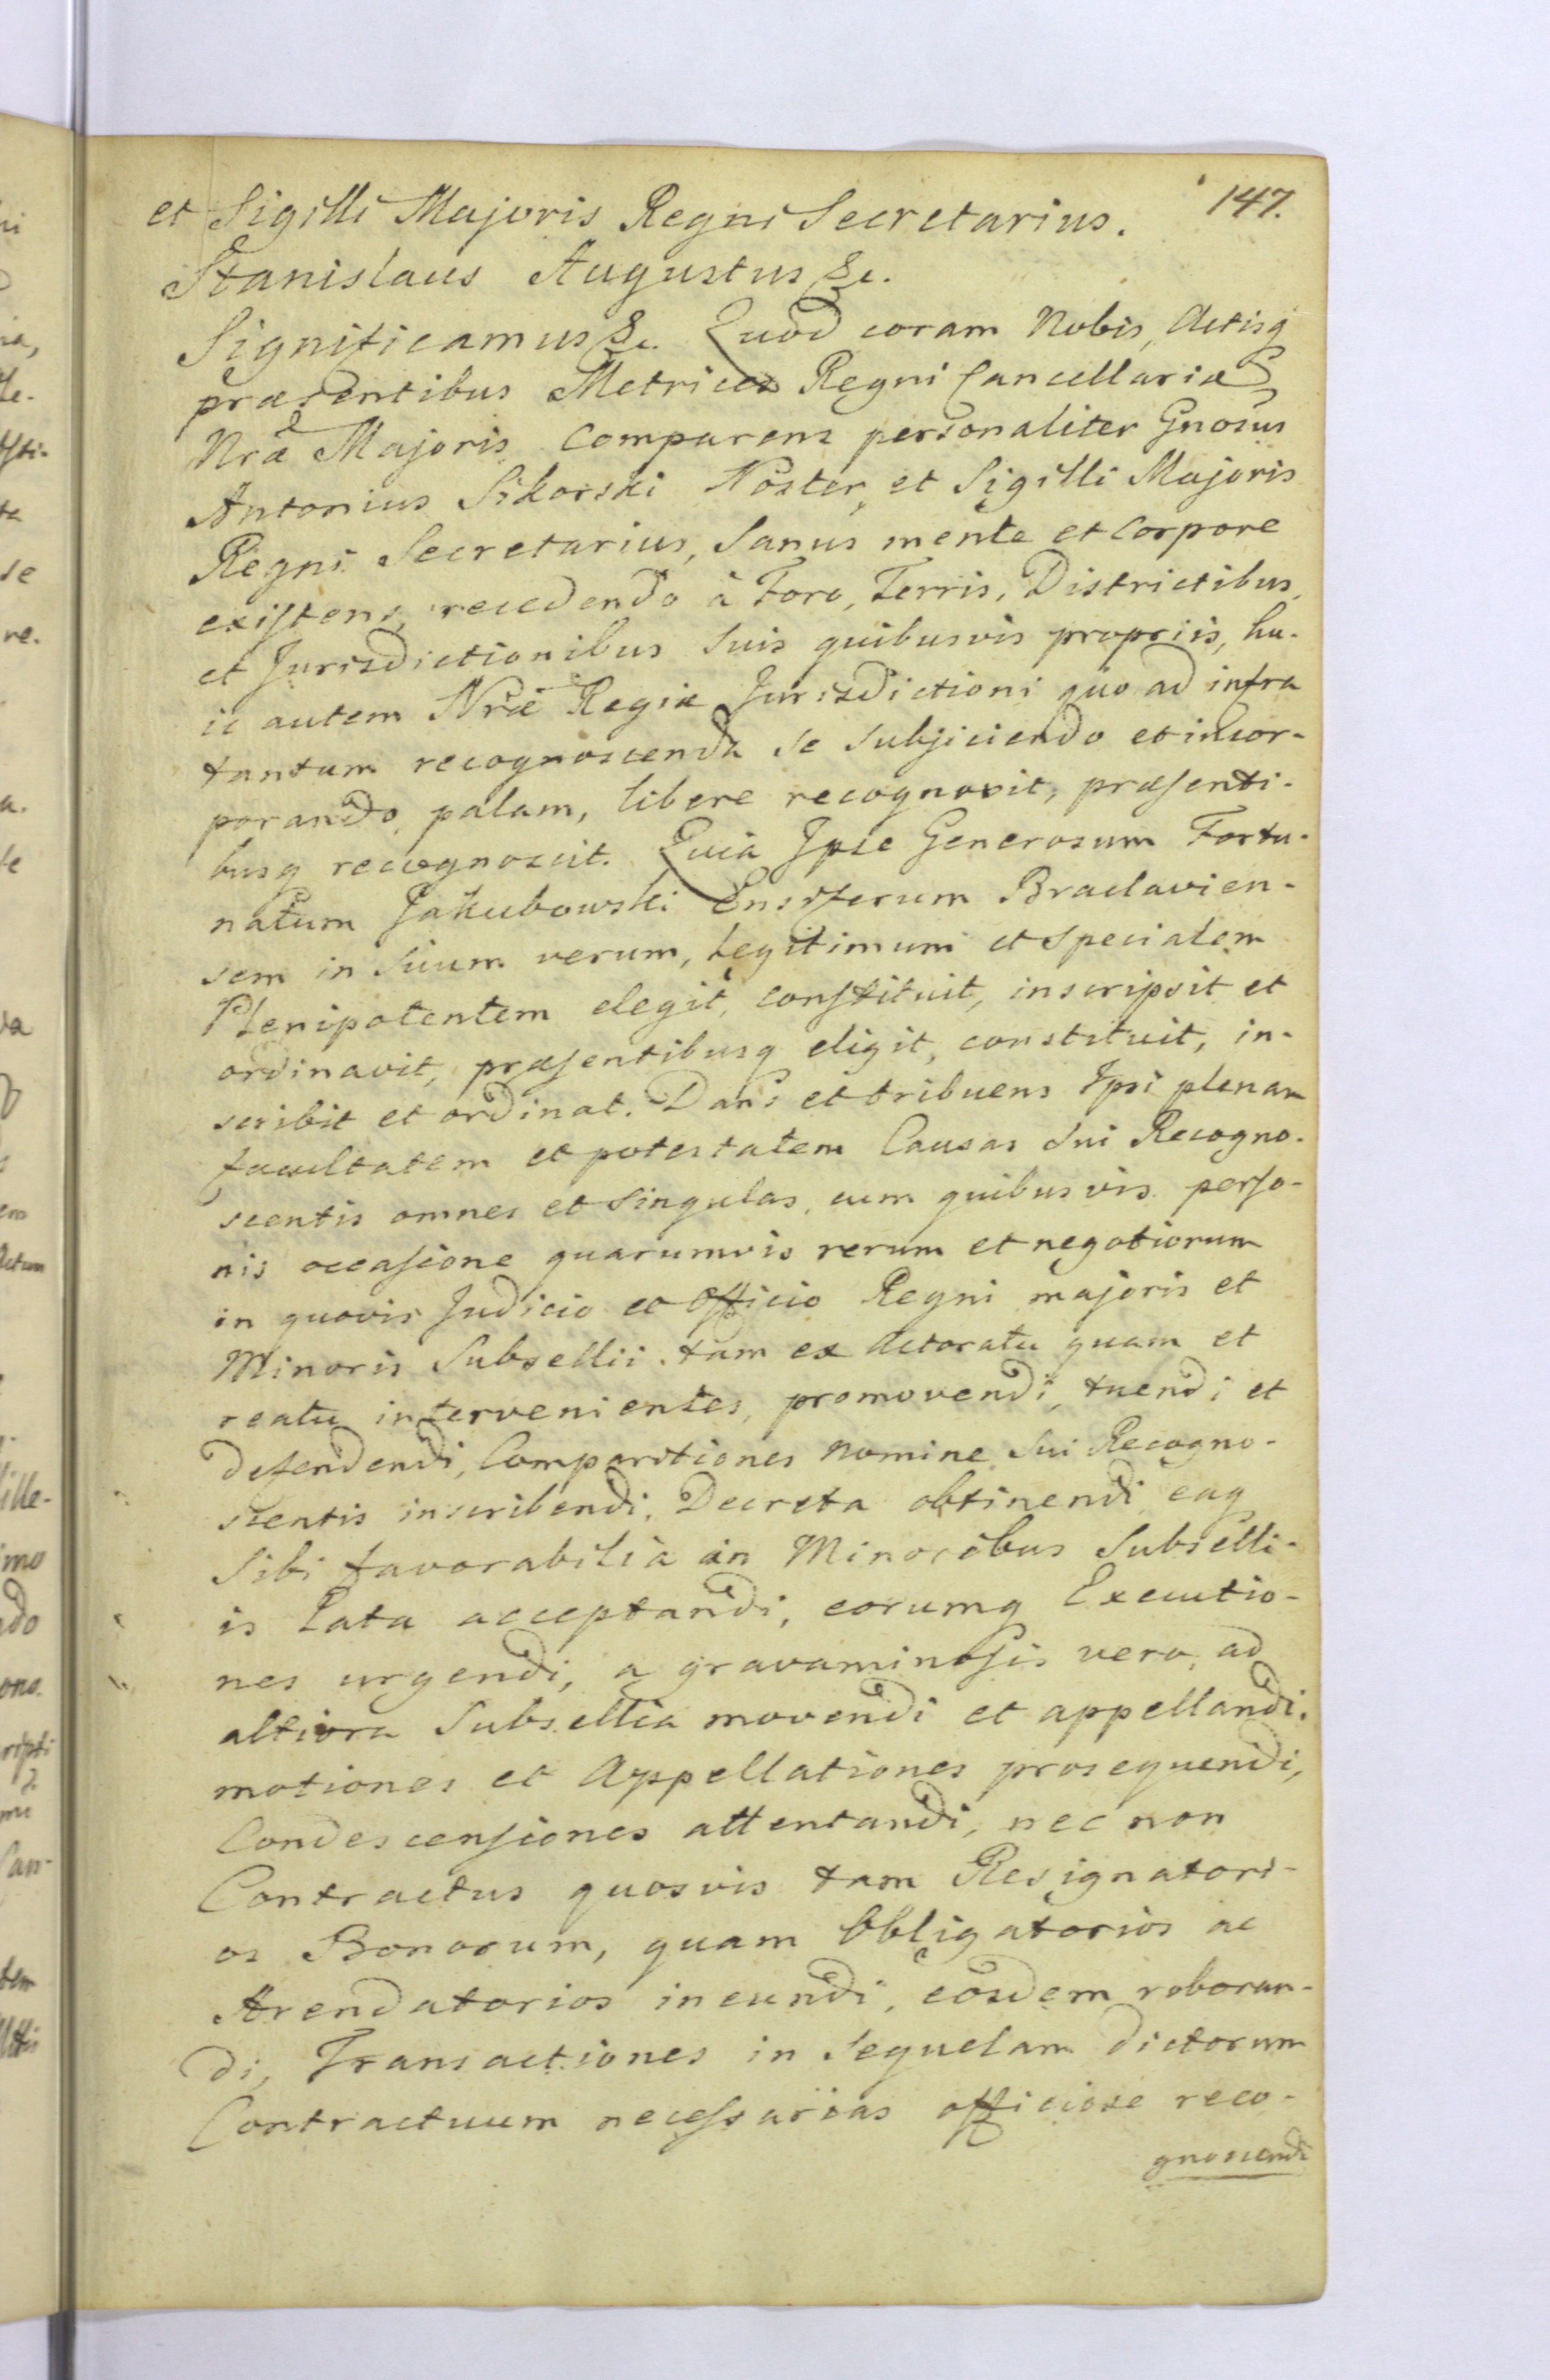 147.
et Sigilli Majoris Regni Secretarius.
Stanislaus Augustus &c.
Significamus &c. Quod coram Nobis, Actisq
præsentibus Metrices Regni Cancellariæ
Nræ Majoris, Comparens personaliter Gnosus
Antonius Sikorski Noster, et Sigilli Majoris
Regni Secretarius, Sanus mente et Corpore
existens, recedendo à Foro, Terris, Districtibus,
et Jurisdictionibus Suis quibusvis propriis, hu-
ic autem Nræ Regiæ Jurisdictioni quo ad infra
tantum recognoscenda se Subjiciendo et incor-
porando, palam, libere recognovit, præsenti-
busq recognoscit. Quia Ipse Generosum Fortu-
natum Jakubowski Ensiferum Braclavien-
sem in Suum verum, legitimum et specialem
Plenipotentem elegit, constituit, inscripsit et
ordinavit, præsentibusq eligit, constituit, in-
scribit et ordinat. Dans et tribuens Ipsi plenam
facultatem et potestatem Causas Sui Recogno-
scentis omnes et Singulas, cum quibusvis perso-
nis occasione quarumvis rerum et negotiorum
in quovis Judicio et Officio Regni majoris et
Minoris Subsellii tam ex Actoratu quam et
reatu intervenientes, promovendi, tuendi et
defendendi, Comparitiones nomine Sui Recogno-
scentis inscribendi, Decreta obtinendi eaq
Sibi favorabilia in Minoribus Subselli-
is Lata acceptandi, eorumq Executio-
nes urgendi, a gravaminosis vero, ad
altiora Subsellia movendi et appellandi.
motiones et Appellationes prosequendi,
Condescensiones attentandi, nec non
Contractus quosvis tam Resignatori-
os Bonorum, quam Obligatorios ac
Arendatorios ineundi, eosdem roboran-
di, Transactiones in Sequelam dictorum
Contractuum necessarias officiose reco-
gnoscendi